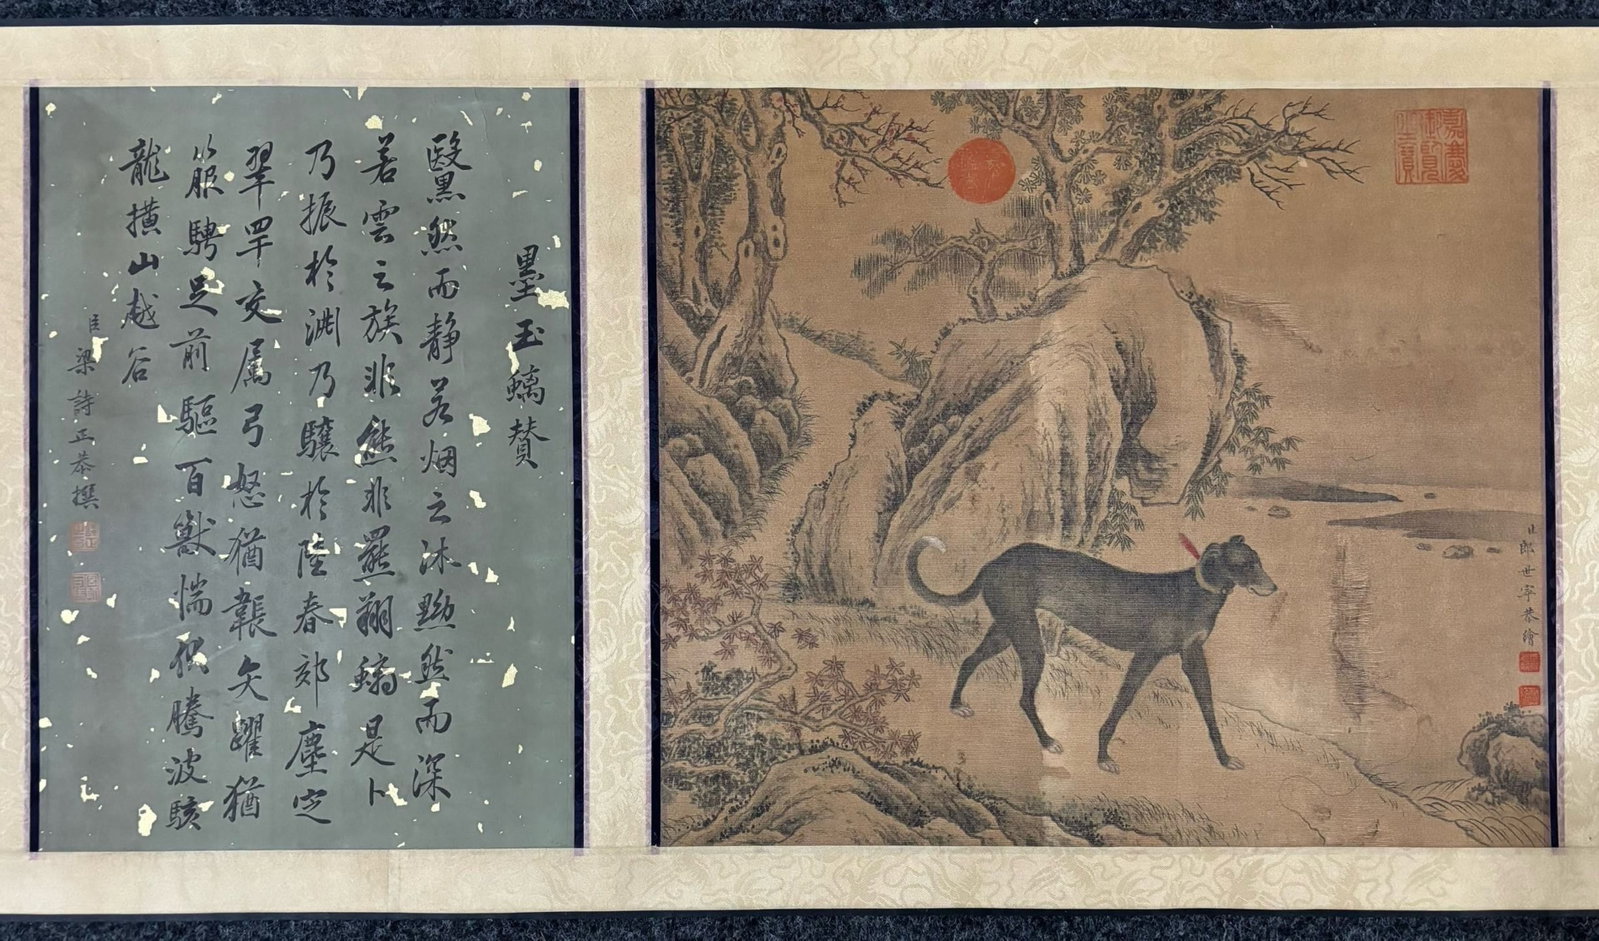 墨玉螭贊
黳黑然而靜若烟之沐黝然而深
若雲之族非熊非羆翔螭是卜
乃振於淵乃驤於陸春郊塵定
翠罕交属弓怒猶韔矢躍猶
箙騁足前驅百獸惴伏騰波駭
龍擭山越谷
臣梁詩正恭撰
嘉慶御覽之寶
臣郎世寧恭繪